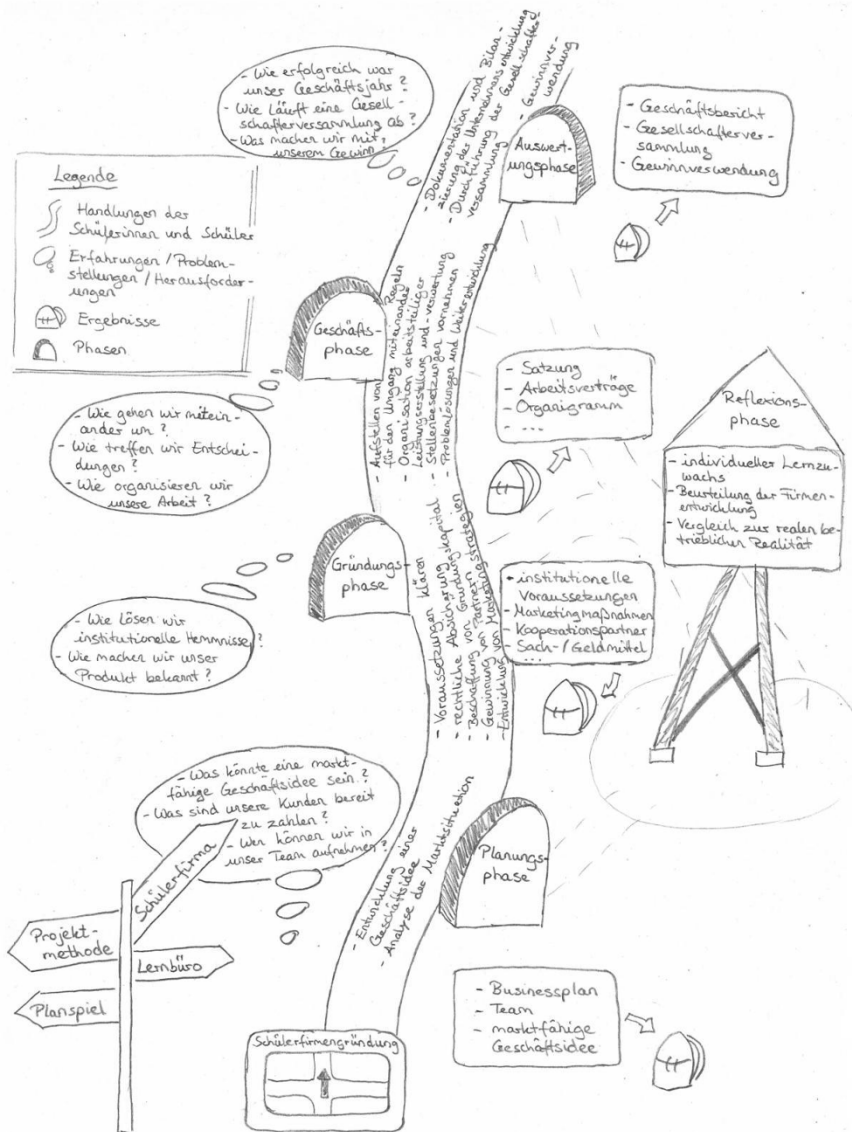 - Wie erfolgreich war
unser Geschäftsjahr?
- Wie läuft eine Gesell-
schafterversammlung ab?
- Was machen wir mit
unserem Gewinn?
- Dokumentation und Bilan-
zierung der Unternehmensentwicklung
- Durchführung der Gesellschafter-
versammlung
- Gewinnver-
wendung
Auswert-
ungsphase
- Geschäftsbericht
- Gesellschafterver-
sammlung
- Gewinnverwendung
Legende
Handlungen der
Schülerinnen und Schüler
Erfahrungen / Problem-
stellungen / Herausforder-
ungen
Ergebnisse
Phasen
Geschäfts-
phase
- Aufstellen von Regeln
für den Umgang miteinander
- Organisation arbeitsteiliger
Leistungserstellung und -verwertung
- Stellenbesetzungen vornehmen
- Problemlösungen und Weiterentwicklung
- Satzung
- Arbeitsverträge
- Organigramm
- ...
Reflexions-
phase
- individueller Lernzu-
wachs
- Beurteilung der Firmen-
entwicklung
- Vergleich zur realen be-
trieblichen Realität
- Wie gehen wir mitein-
ander um?
- Wie treffen wir Entschei-
dungen?
- Wie organisieren wir
unsere Arbeit?
Gründungs-
phase
- Voraussetzungen klären
- rechtliche Absicherung
- Beschaffung von Gründungskapital
- Gewinnung von Partnern
- Entwicklung von Marketingstrategien
- institutionelle
Voraussetzungen
- Marketingmaßnahmen
- Kooperationspartner
- Sach-/Geldmittel
...
- Wie lösen wir
institutionelle Hemmnisse?
- Wie machen wir unser
Produkt bekannt?
- Was könnte eine markt-
fähige Geschäftsidee sein?
- Was sind unsere Kunden bereit
zu zahlen?
- Wen können wir in
unser Team aufnehmen?
- Entwicklung einer
Geschäftsidee
- Analyse der Marktsituation
Planungs-
phase
Schülerfirma
Projekt-
methode
Lernbüro
Planspiel
- Businessplan
- Team
- marktfähige
Geschäftsidee
Schülerfirmengründung